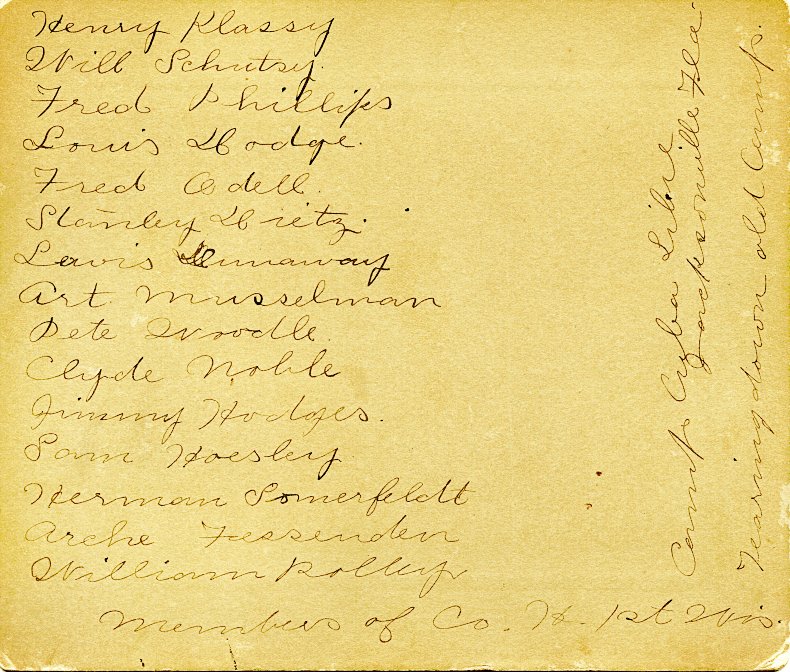 Henry Klassy
Will Schutsy.
Fred Phillips
Louis Dodge.
Fred Odell.
Stanley Dietz.
Lewis Dunaway
Art. Musselman
Pete Woodle.
Clyde Noble
Jimmy Hodges.
Sam Hoesley
Herman Somerfeldt
Arche Fessenden
William Polley
Members of Co. H. 1st Wis.
Camp Cuba Libre
Jacksonville Fla.
Tearing down old Camp.